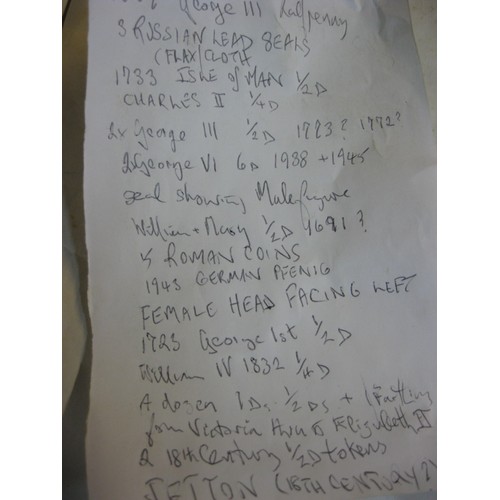 George III halfpenny
3 RUSSIAN LEAD SEALS
(FLAX/CLOTH
1733 ISLE of MAN 1/2D
CHARLES II 1/4D
2x George III 1/2D 1773? 1772?
2xGeorge VI 6D 1938 + 1945
seal showing Male figure
William + Mary 1/2D 1691?
4 ROMAN COINS
1943 GERMAN PFENIG
FEMALE HEAD FACING LEFT
1723 George 1st 1/2D
William IV 1832 1/4D
A dozen 1Ds 1/2Ds + (Farthing
from Victoria thru to Elizabeth II
2 18th Century 1/2D tokens
JETTON (18TH CENTURY?)